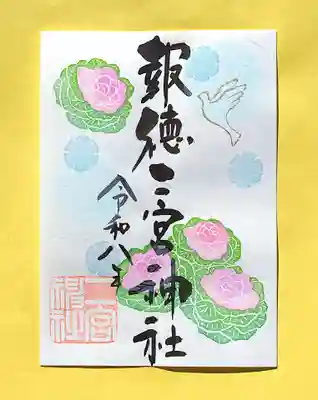 報徳二宮神社
令和八年
二宮
神社